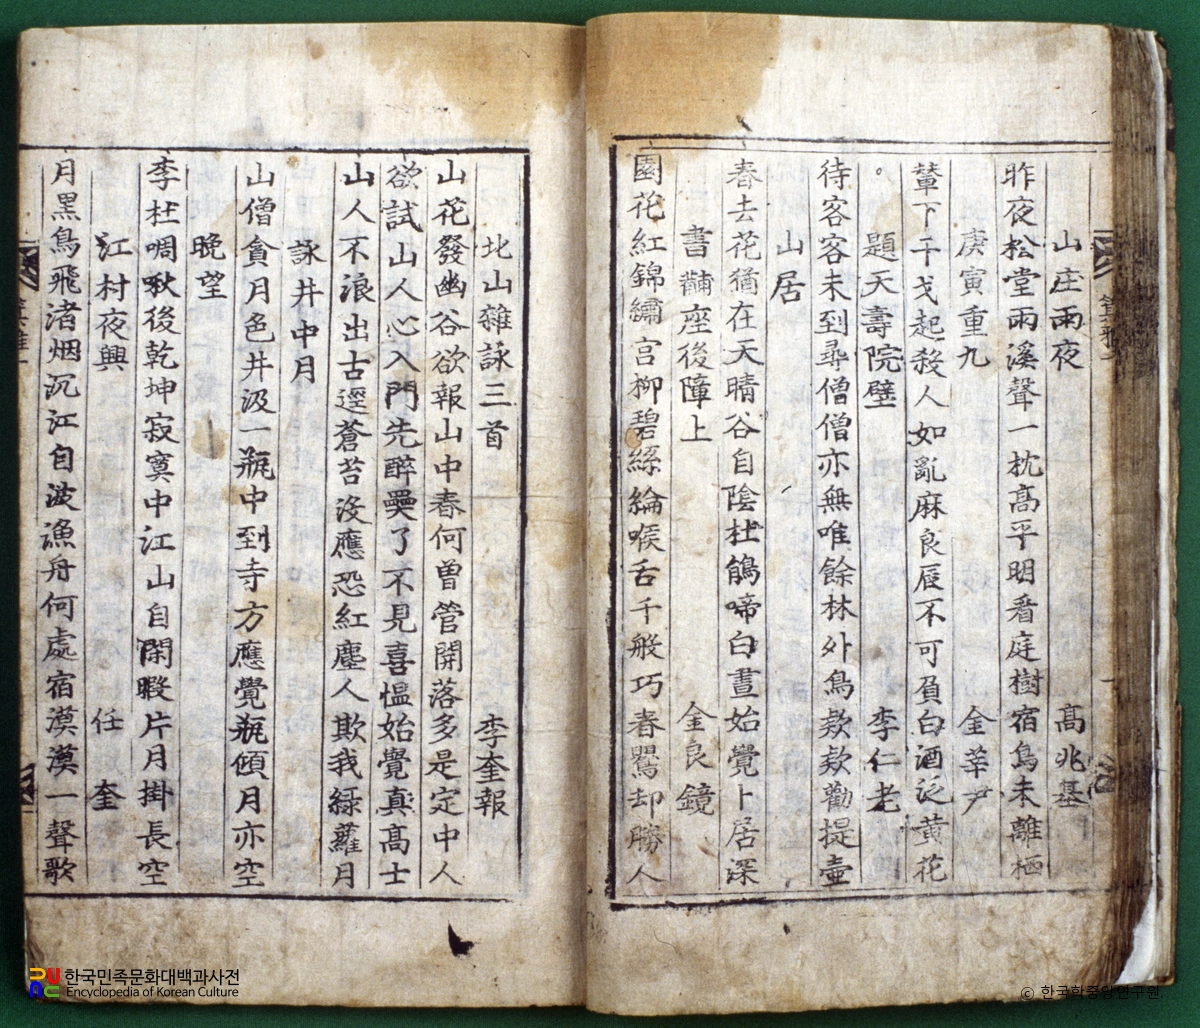 山庄雨夜 高兆基
昨夜松堂雨溪聲一枕高平明看庭樹宿鳥未離栖
庚寅重九 金莘尹
輦下干戈起殺人如亂麻良辰不可負白酒泛黃花
。題天壽院壁 李仁老
待客客未到尋僧僧亦無唯餘林外鳥欵欵勸提壺
山居
春去花猶在天晴谷自陰杜鵑啼白晝始覺卜居深
書黼座後障上 金良鏡
園花紅錦繡宮柳碧絲綸喉舌千般巧春鸎却勝人
北山雜詠三首 李奎報
山花發幽谷欲報山中春何曾管開落多是定中人
欲試山人心入門先醉㚑了不見喜慍始覺真高士
山人不浪出古逕蒼苔沒應恐紅塵人欺我綠蘿月
詠井中月
山僧貪月色井汲一瓶中到寺方應覺瓶傾月亦空
晚望
李杜啁啾後乾坤寂寞中江山自閑暇片月掛長空
江村夜興 任奎
月黑鳥飛渚烟沉江自波漁舟何處宿漠漠一聲歌
한국민족문화대백과사전
Encyclopedia of Korean Culture
© 한국학중앙연구원